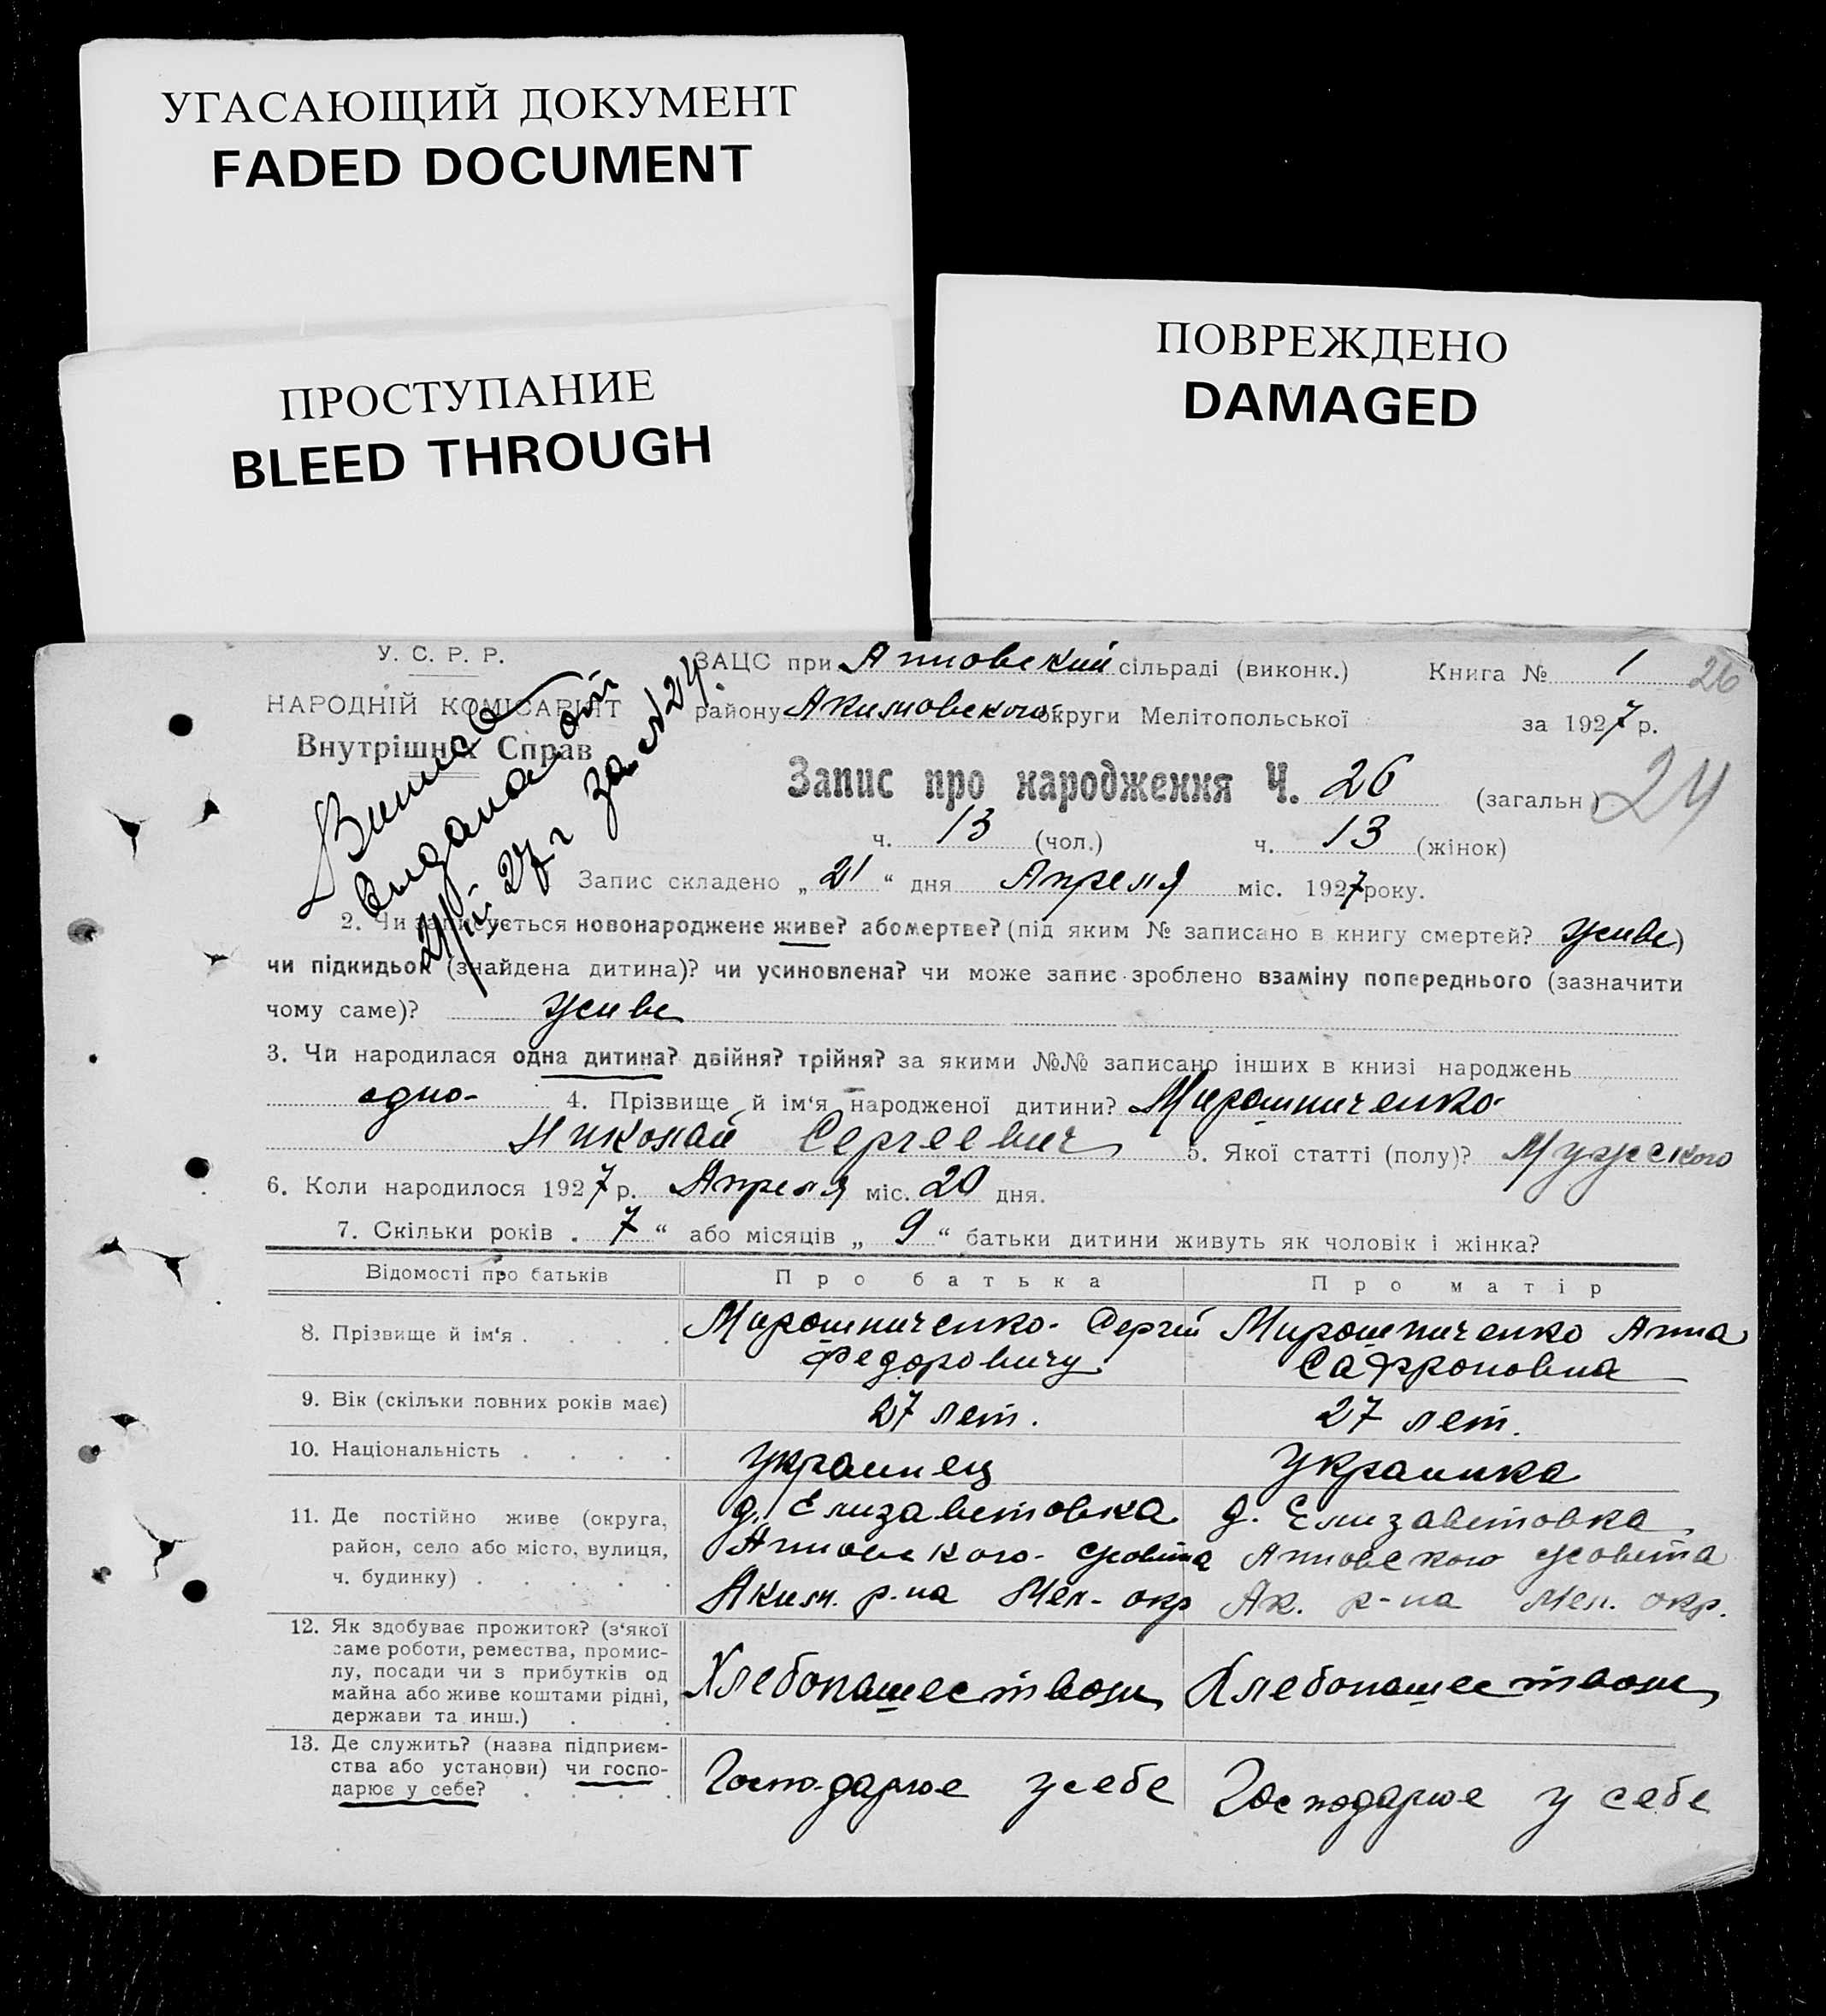 УГАСАЮЩИЙ ДОКУМЕНТ
FADED DOCUMENT
ПРОСТУПАНИЕ
BLEED THROUGH
ПОВРЕЖДЕНО
DAMAGED
У. С. Р. Р.
НАРОДНІЙ КОМІСАРІЯТ
Внутрішніх Справ
ЗАЦС при Анновский сільраді (виконк.) Книга № 1 26
району Акимовского округи Мелітопольської за 1927 р.
Запис про народження Ч. 26 (загальн.) 24
ч. 13 (чол.) ч. 13 (жінок)
за № 24.
Запис складено „ 21 “ дня Апреля міс. 1927 року.
2. Чи записується новонароджене живе? або мертве? (під яким № записано в книгу смертей? живе)
чи підкидьок (знайдена дитина)? чи усиновлена? чи може запис зроблено взаміну попереднього (зазначити
чому саме)? живе
3. Чи народилася одна дитина? двійня? трійня? за якими №№ записано інших в книзі народжень
одно- 4. Прізвище й ім‘я народженої дитини? Мирошниченко-
Николай Сергеевич 5. Якої статті (полу)? Мужского
6. Коли народилося 1927 р. Апреля міс. 20 дня.
7. Скільки років „ 7 “ або місяців „ 9 “ батьки дитини живуть як чоловік і жінка?
Відомості про батьків Про батька Про матір
8. Прізвище й ім‘я . . . . Мирошниченко- Сергей Мирошниченко Анна
Федоровичу Сафроновна
9. Вік (скільки повних років має) 27 лет. 27 лет.
10. Національність . . . . украинец Украинка
11. Де постійно живе (округа, д. Елизаветовка д. Елизаветовка
район, село або місто, вулиця, Анновского- с/совета Анновского с/совета
ч. будинку) . . . . . Аким. р-на Мел- окр Ак. р-на Мел. окр.
12. Як здобуває прожиток? (з‘якої
саме роботи, ремества, промис-
лу, посади чи з прибутків од Хлебопашеством Хлебопашеством
майна або живе коштами рідні,
держави та инш.) . .
13. Де служить? (назва підприєм-
ства або установи) чи госпо- Господарює у себе Господарює у себе
дарює у себе? . . . .